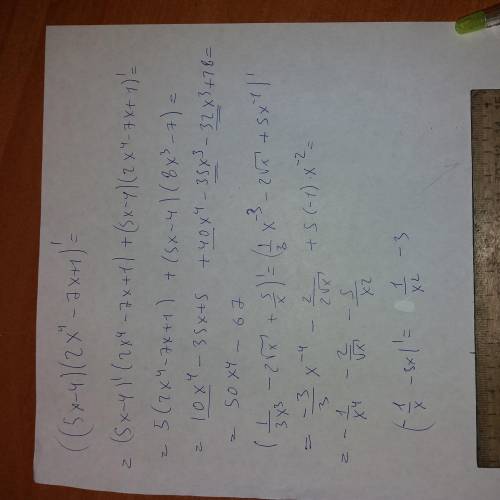 ((5x-4)(2x⁴-7x+1))'=
= (5x-4)'(2x⁴-7x+1)+(5x-4)(2x⁴-7x+1)'=
= 5(2x⁴-7x+1)+(5x-4)(8x³-7)=
= 10x⁴-35x+5 +40x⁴-35x³-32x³+28=
= 50x⁴-67
(1/3x³ - 2√x + 5/x)'=(1/3 x⁻³ - 2√x + 5x⁻¹)'
= -3/3 x⁻⁴ - 2/2√x + 5(-1)·x⁻²=
= -1/x⁴ - 2/√x - 5/x2
(-1/x - 3x)'= 1/x2 - 3